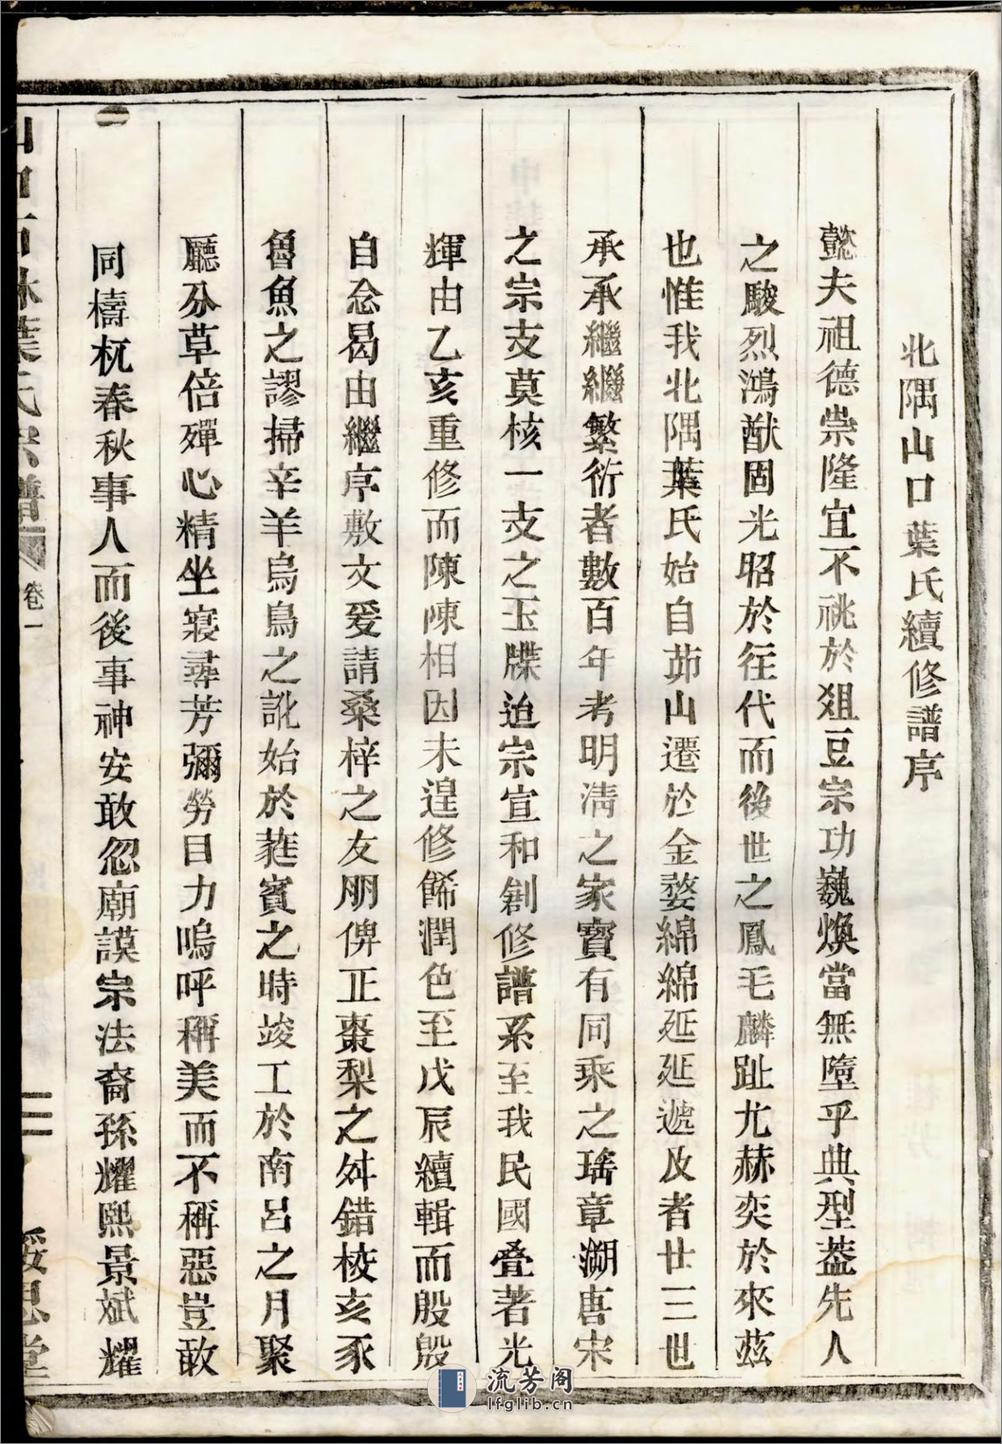 北隅山口葉氏續修譜序
懿夫祖德崇隆宜不祧於俎豆宗功巍煥當無墮乎典型蓋先人
之駿烈鴻猷固光昭於往代而後世之鳳毛麟趾尤赫奕於來茲
也惟我北隅葉氏始自茆山遷於金婺綿綿延延遞及者廿三世
承承繼繼繁衍者數百年考明淸之家寶有同乘之瑤章溯唐宋
之宗支莫核一支之玉牒迨宗宣和創修譜系至我民國叠著光
輝由乙亥重修而陳陳相因未遑修餙潤色至戊辰續輯而殷殷
自念曷由繼序敷文爰請桑梓之友朋俾正棗梨之舛錯校亥豕
魯魚之謬掃辛羊烏鳥之訛始於蕤賓之時竣工於南呂之月聚
廳分草倍殫心精坐寢尋芳彌勞目力嗚呼稱美而不稱惡豈敢
同檮杌春秋事人而後事神安敢忽廟謨宗法裔孫耀熙景斌耀
山口石林葉氏宗譜
卷一
二
綏思堂
流芳阁
lfglib.cn